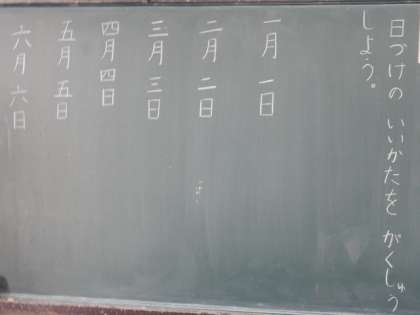 日づけの いいかたを がくしゅう
しよう。
一月 一日
二月 二日
三月 三日
四月 四日
五月 五日
六月 六日